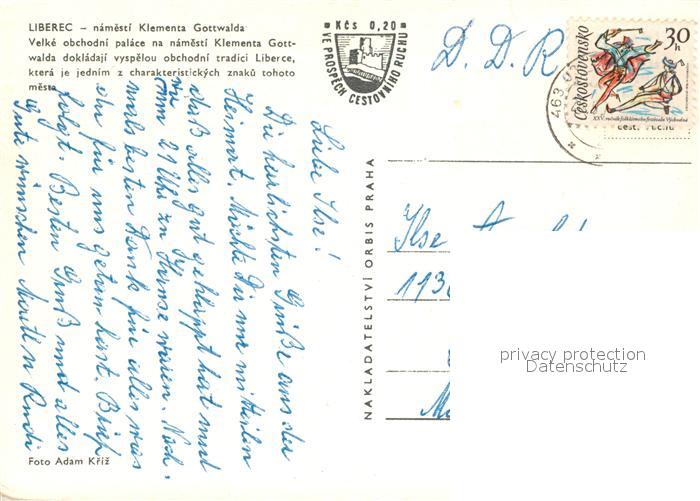 LIBEREC – náměstí Klementa Gottwalda
Velké obchodní paláce na náměstí Klementa Gott-
walda dokládají vyspělou obchodní tradici Liberce,
která je jedním z charakteristických znaků tohoto
města
Kčs 0,20
VE PROSPĚCH CESTOVNÍHO RUCHU
D. D. R
30h
Československo
XXV. ročník folklórního festivalu Východná
463 0
cest. ruchu
Liebe Ilse!
Die herzlichsten Grüße aus der
Heimat. Möchte Dir nur mitteilen
daß alles gut geklappt hat und
wir
um 21 Uhr zu Hause waren. Noch-
mals besten Dank für alles was
du für uns getan hast. Brief
folgt. Besten Gruß und alles
Gute wünschen Mautl u Rudi
NAKLADATELSTVÍ ORBIS PRAHA
Ilse
113
M
privacy protection
Datenschutz
Foto Adam Kříž